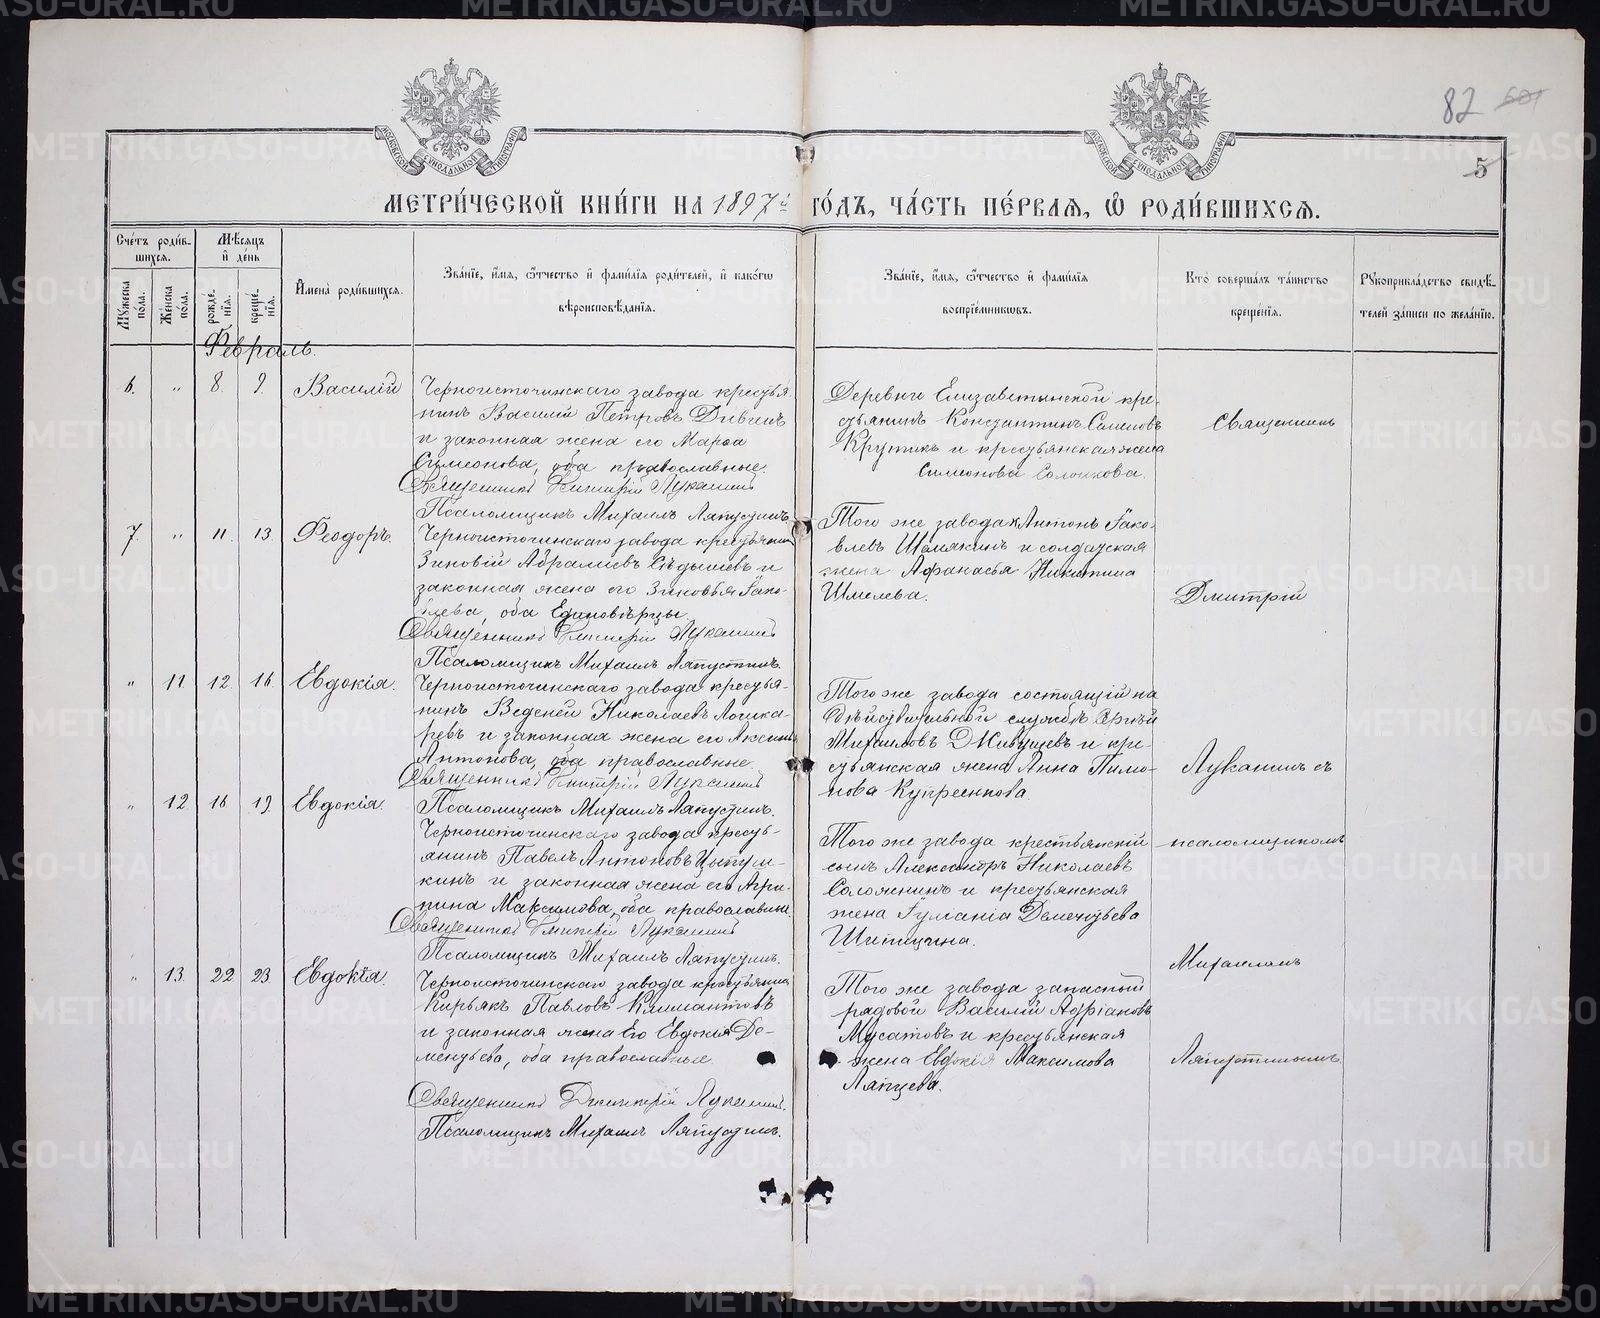 82 501
5
МОСКОВСКОЙ СУНОДАЛЬНОЙ ТИПОГРАФІИ
МОСКОВСКОЙ СУНОДАЛЬНОЙ ТИПОГРАФІИ
МЕТРИ́ЧЕСКОЙ КНИ́ГИ НА 1897й ГО́ДЪ, ЧА́СТЬ ПЕ́РВАЯ, Ѡ РОДИ́ВШИХСЯ.
Сче́тъ роди́вшихся.
Мꙋ́жеска по́ла.
Же́нска по́ла.
Мѣ́сяцъ и҆ де́нь
рожде́нїя.
креще́нїя.
И҆мена̀ роди́вшихся.
Зва́нїе, и҆́мя, ѻ҆́тчество и҆ фами́лїя роди́телей, и҆ како́гѡ вѣроисповѣ́данїя.
Зва́нїе, и҆́мя, ѻ҆́тчество и҆ фами́лїя воспрїе́мникѡвъ.
Кто̀ соверша́лъ та́инство креще́нїя.
Рꙋкоприкла́дство свидѣ́телей за́писи по жела́нїю.
Февраль.
6. " 8. 9. Василій
Черноисточинскаго завода крестья-
нинъ Василій Петровъ Дивинъ
и законная жена его Марѳа
Симеонова, оба православные.
Священникъ Димитрій Луканинъ
Псаломщикъ Михаилъ Ляпустинъ.
Деревни Елизаветинской кре-
стьянинъ Константинъ Симеоновъ
Крутикъ и крестьянская жена
Симеонова
Священникъ
7. " 11. 13. Ѳеодоръ.
Черноисточинскаго завода крестьянинъ
Зиновій
законная жена его Зиновья Яко-
влева, оба Единовѣрцы.
Священникъ Димитрій Луканинъ
Псаломщикъ Михаилъ Ляпустинъ.
Того же завода Антонъ Яко-
влевъ Шамякинъ и солдатская
жена Афанасья Никитина
Шмелева.
Дмитрій
" 11. 12. 16. Евдокія.
Черноисточинскаго завода крестья-
нинъ Веденей Николаевъ
и законная жена его
Антонова, оба православные.
Священникъ Димитрій Луканинъ
Псаломщикъ Михаилъ Ляпустинъ.
Того же завода состоящій на
дѣйствительной службѣ
Михаиловъ и кре-
стьянская жена Анна Пимо-
нова Купреенкова.
Луканинъ съ
" 12 16 19. Евдокія.
Черноисточинскаго завода кресть-
янинъ Павелъ Антоновъ
и законная жена его Агри-
пина Максимова, оба православные.
Священникъ Дмитрій Луканинъ
Псаломщикъ Михаилъ Ляпустинъ.
Того же завода крестьянскій
сынъ Александръ Николаевъ
и крестьянская
жена Іуліанія Дементьева
Шитицына.
псаломщикомъ
" 13. 22 23. Евдокія.
Черноисточинскаго завода крестьянинъ
Кирьякъ Павловъ
и законная жена его Евдокія Де-
ментьева, оба православные
Священникъ Димитрій Луканинъ.
Псаломщикъ Михаилъ Ляпустинъ.
Того же завода запасный
рядовой Василій Адріановъ
Мусатовъ и крестьянская
жена Евдокія Максимова
Ляпцева.
Михаиломъ
Ляпустинымъ
METRIKI.GASO-URAL.RU